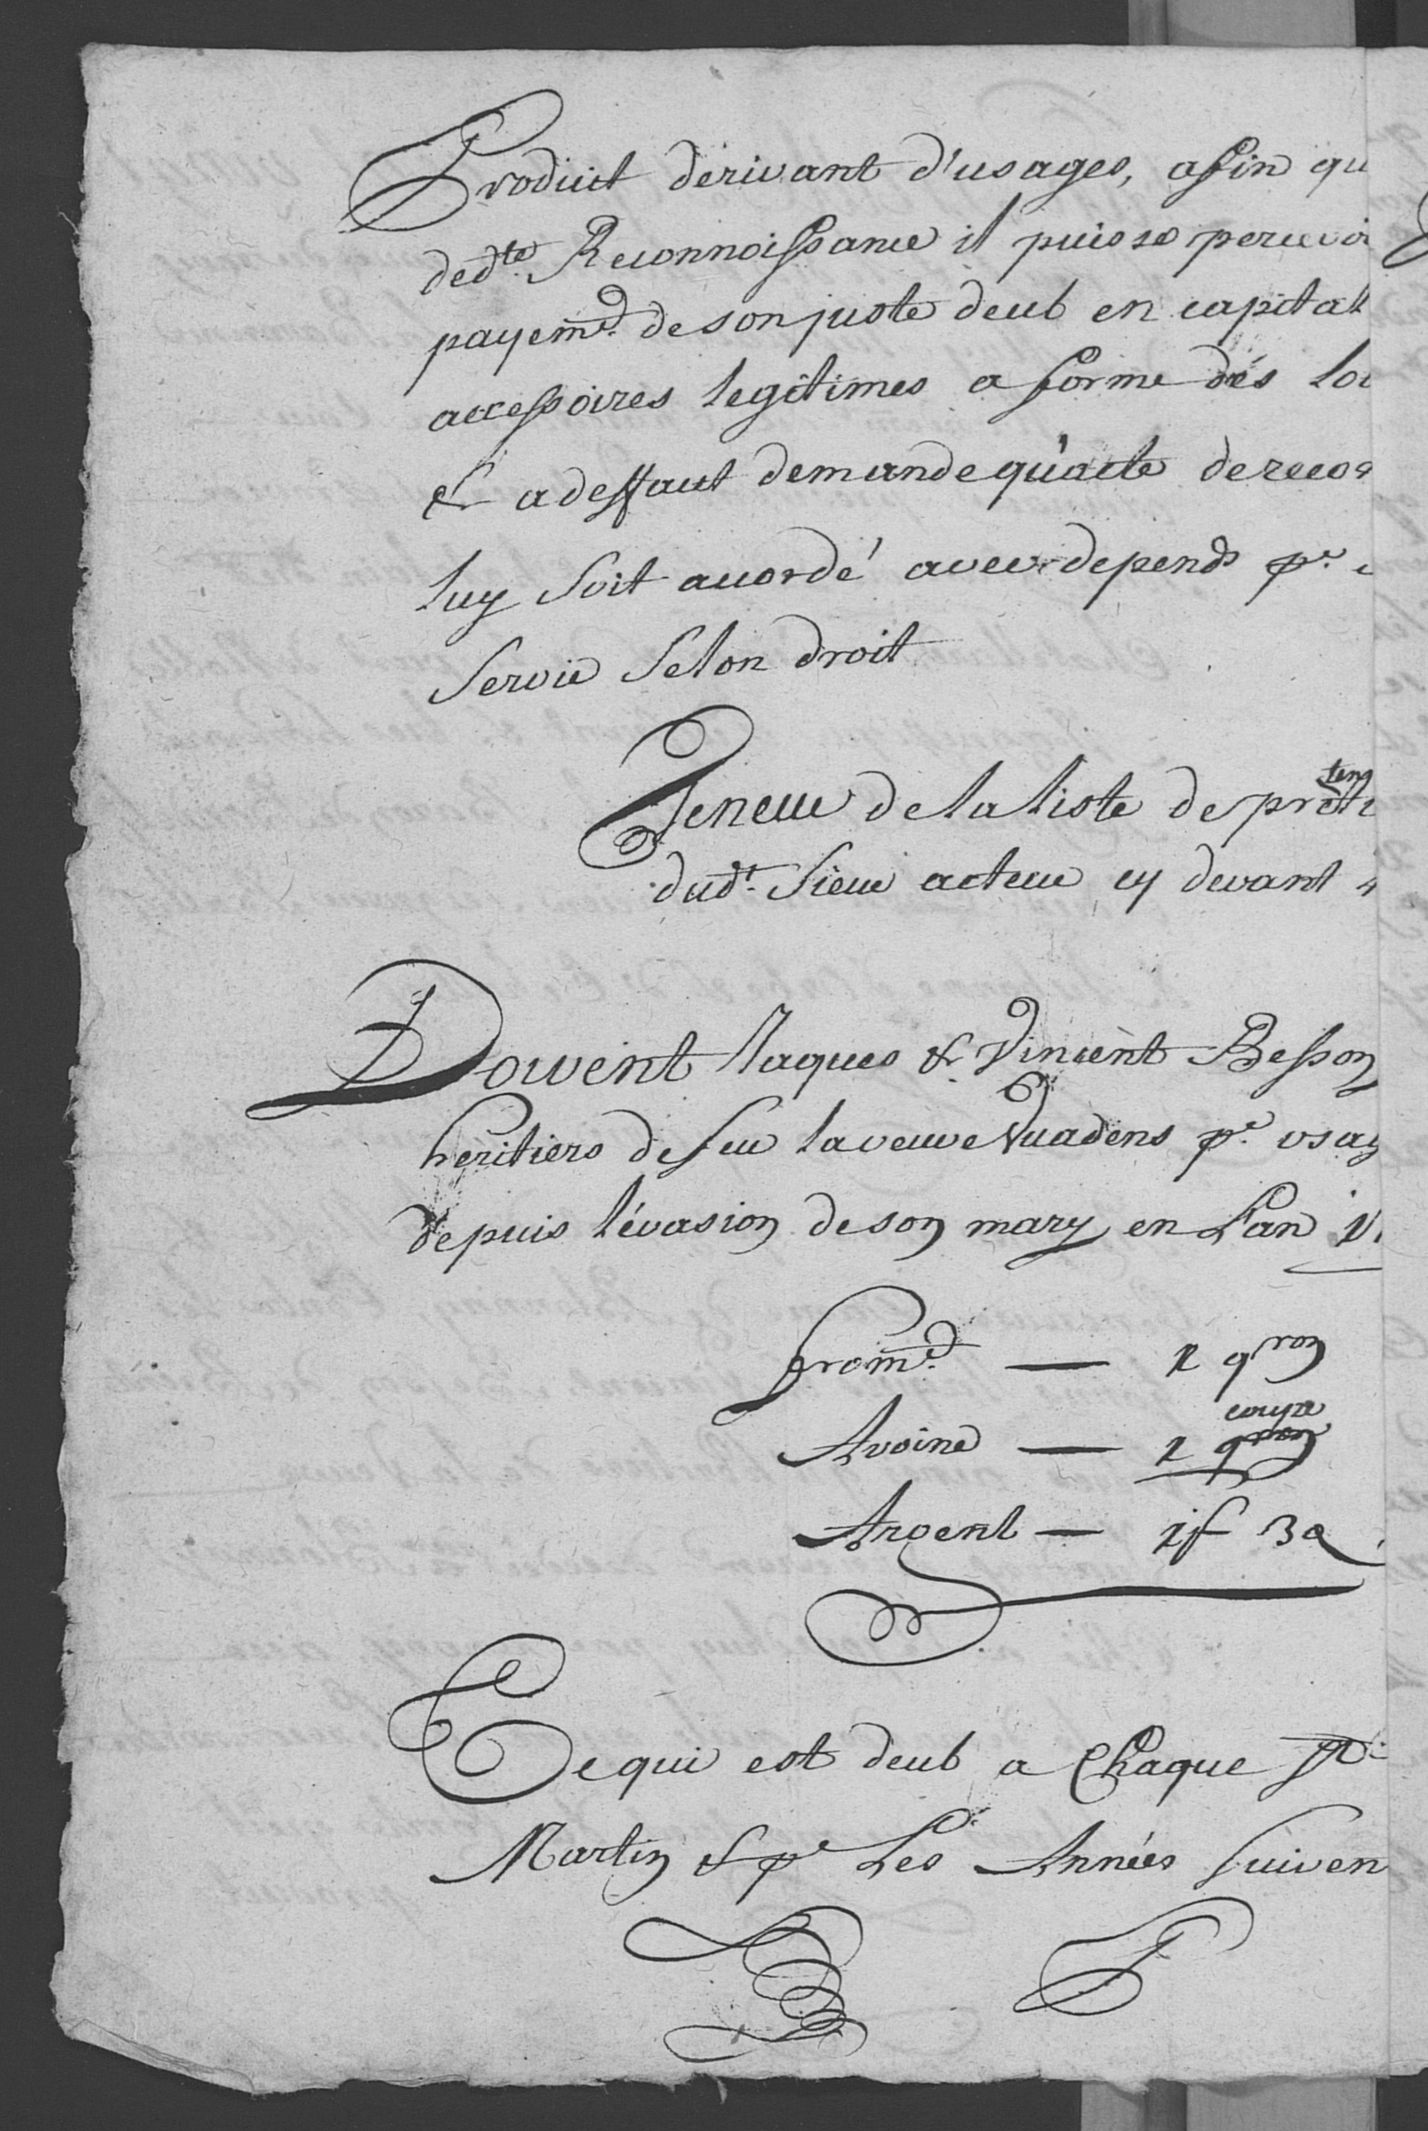 Produit derivant d'usages, affin qu
dedte. Reconnoissance il puisse percevoi
payemt. de son juste deub en capital
accessoires legitimes a forme des loi
& a deffaut demande qu'acte de recor
luy soit acordé avec depends pr.
servir selon droit
Teneur de la liste de preten
dudt. Sieur acteur cy devant
Doivent Jaques & Vincent Besson
heritiers de feu la veuve Vuadens pr. usag
depuis l'évasion de son mary en L'an 1
froment. — 1 qron
coupe
Avoine — 1 qron
Argent — 1f 3
Ce qui est deub a Chaque St.
Martin & pr Les Années suiven